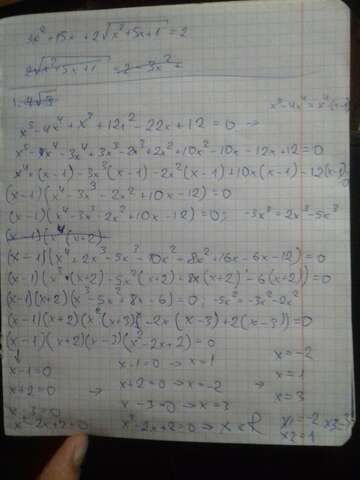 3x² + 15x + 2√x²+5x+1 = 2
1.
x⁵ - 4x⁴ + x³ + 12x² - 22x + 12 = 0 →
x⁵ - x⁴ - 3x⁴ + 3x³ - 2x³ + 2x² + 10x² - 10x - 12x + 12 = 0
x⁴(x-1) - 3x³(x-1) - 2x²(x-1) + 10x(x-1) - 12(x-1)
(x-1)(x⁴ - 3x³ - 2x² + 10x - 12) = 0
(x-1)(x⁴ - 3x³ - 2x² + 10x - 12) = 0; -3x³ = 2x³ - 5x³
(x-1)(x⁴ + 2x³ - 5x³ - 10x² + 8x² + 16x - 6x - 12) = 0
(x-1)(x³(x+2) - 5x²(x+2) + 8x(x+2) - 6(x+2)) = 0
(x-1)(x+2)(x³ - 5x² + 8x - 6) = 0; -5x² = -3x² - 2x²
(x-1)(x+2)(x²(x-3) - 2x(x-3) + 2(x-3)) = 0
(x-1)(x+2)(x-3)(x² - 2x + 2) = 0
x-1=0 x-1=0 → x=1 x=-2
x+2=0 → x+2=0 → x=-2 → x=1
x-3=0 x-3=0 → x=3 x=3
x²-2x+2=0 x²-2x+2=0 → x